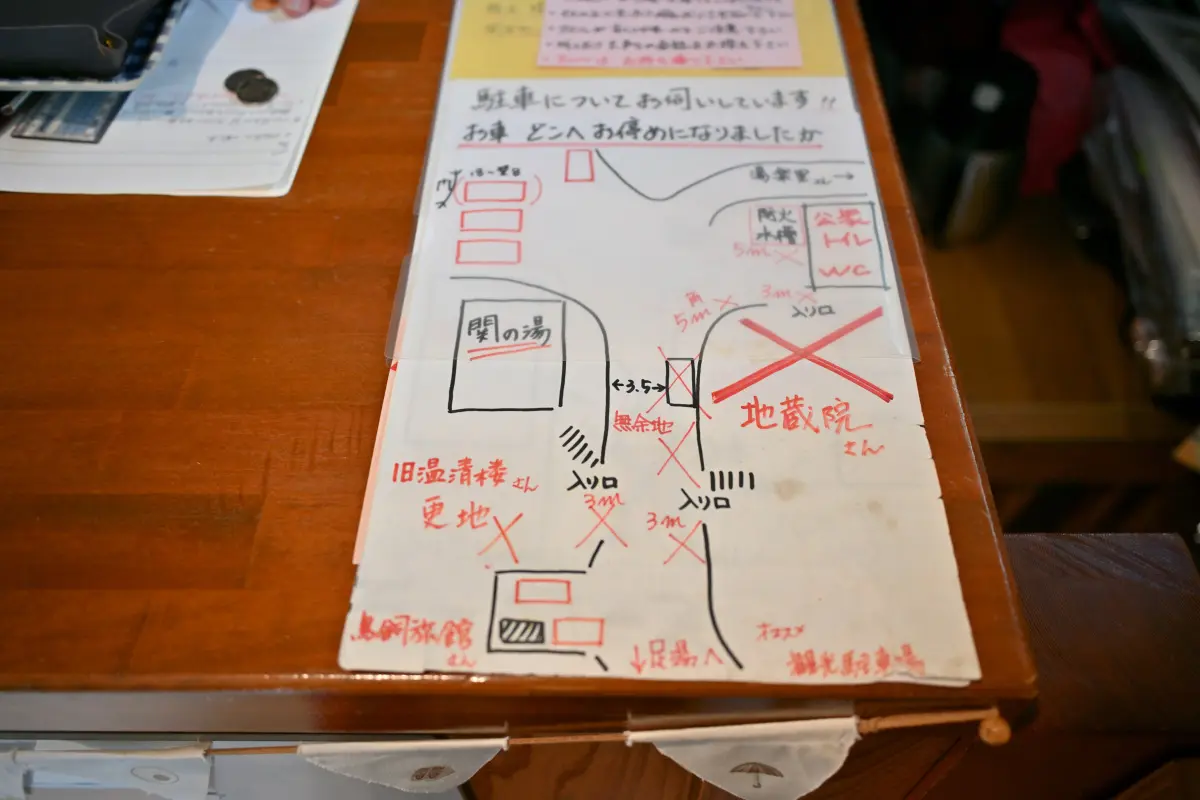 駐車についてお伺いしています!!
お車 どこへ お停めになりましたか
湯楽里さん→
防火
水槽
5m
公衆
トイレ
WC
角
5m
3m
入り口
関の湯
←3.5→
無余地
地蔵院
さん
旧温清楼さん
更地
入り口
3m
入り口
3m
鳥飼旅館
さん
↓足湯へ
オススメ
観光駐車場